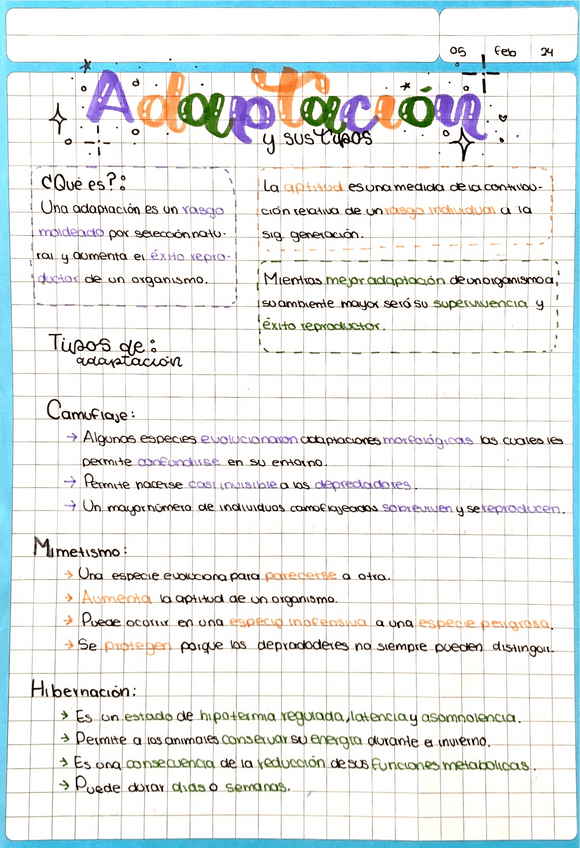 05 feb 24
Adaptación
y sus tipos
¿Qué es?:
Una adaptación es un rasgo
moldeado por selección natu-
ral y aumenta el éxito repro-
ductor de un organismo.
La aptitud es una medida de la contribu-
ción relativa de un rasgo individual a la
sig. generación.
Mientras mejor adaptación de un organismo a
su ambiente mayor será su supervivencia y
éxito reproductor.
Tipos de:
adaptación
Camuflaje:
→ Algunas especies evolucionaron adaptaciones morfológicas las cuales les
permite confundirse en su entorno.
→ Permite hacerse casi invisible a los depredadores.
→ Un mayor número de individuos camoflajeados sobreviven y se reproducen.
Mimetismo:
→ Una especie evoluciona para parecerse a otra.
→ Aumenta la aptitud de un organismo.
→ Puede ocurrir en una especie inofensiva a una especie peligrosa.
→ Se protegen porque los depradaderes no siempre pueden distinguir.
Hibernación:
→ Es un estado de hipotermia regulada, latencia y asomnolencia.
→ Permite a los animales conservar su energía durante el invierno.
→ Es una consecuencia de la reducción de sus funciones metabolicas.
→ Puede durar días o semanas.